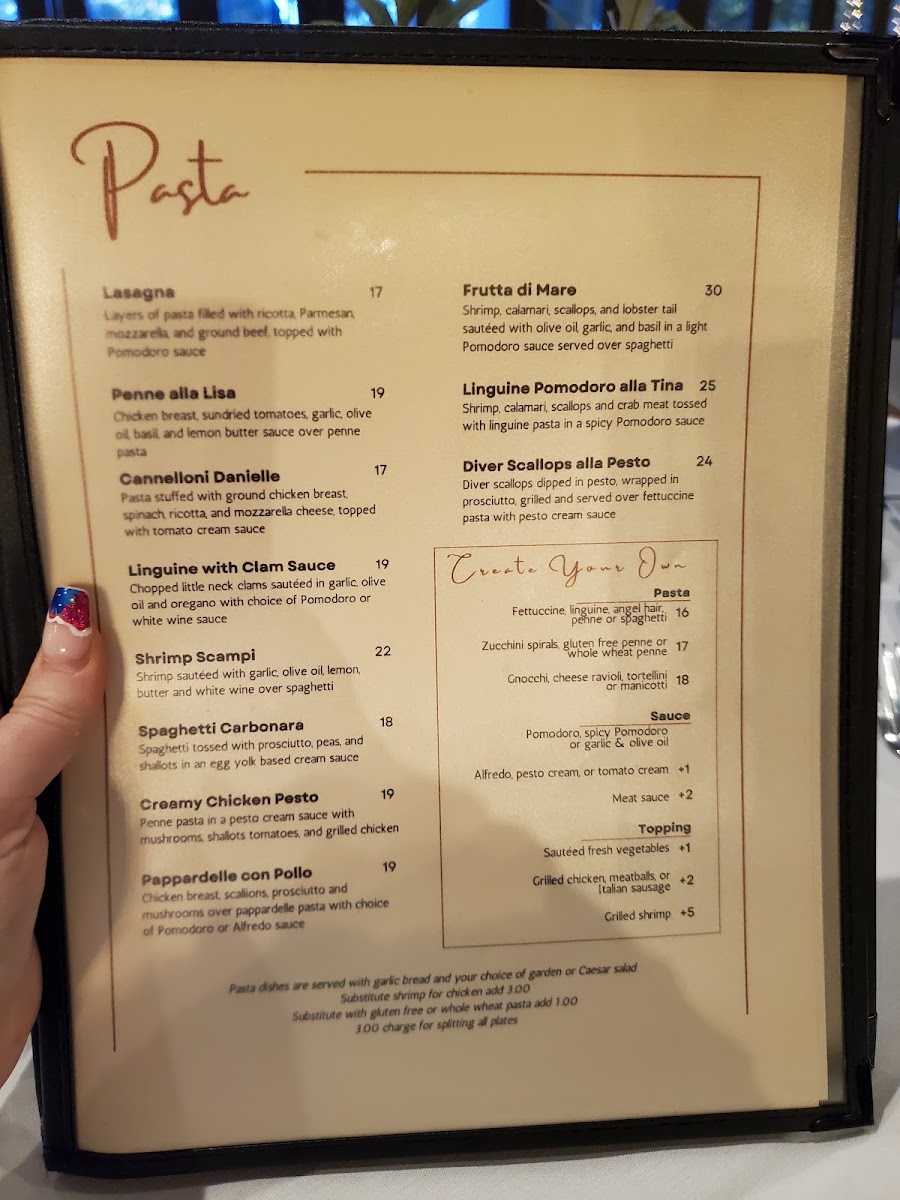 Pasta
Lasagna 17
Layers of pasta filled with ricotta, Parmesan,
mozzarella, and ground beef, topped with
Pomodoro sauce
Penne alla Lisa 19
Chicken breast, sundried tomatoes, garlic, olive
oil, basil, and lemon butter sauce over penne
pasta
Cannelloni Danielle 17
Pasta stuffed with ground chicken breast,
spinach, ricotta, and mozzarella cheese, topped
with tomato cream sauce
Linguine with Clam Sauce 19
Chopped little neck clams sautéed in garlic, olive
oil and oregano with choice of Pomodoro or
white wine sauce
Shrimp Scampi 22
Shrimp sautéed with garlic, olive oil, lemon,
butter and white wine over spaghetti
Spaghetti Carbonara 18
Spaghetti tossed with prosciutto, peas, and
shallots in an egg yolk based cream sauce
Creamy Chicken Pesto 19
Penne pasta in a pesto cream sauce with
mushrooms, shallots tomatoes, and grilled chicken
Pappardelle con Pollo 19
Chicken breast, scallions, prosciutto and
mushrooms over pappardelle pasta with choice
of Pomodoro or Alfredo sauce
Frutta di Mare 30
Shrimp, calamari, scallops, and lobster tail
sautéed with olive oil, garlic, and basil in a light
Pomodoro sauce served over spaghetti
Linguine Pomodoro alla Tina 25
Shrimp, calamari, scallops and crab meat tossed
with linguine pasta in a spicy Pomodoro sauce
Diver Scallops alla Pesto 24
Diver scallops dipped in pesto, wrapped in
prosciutto, grilled and served over fettuccine
pasta with pesto cream sauce
Create Your Own
Pasta
Fettuccine, linguine, angel hair,
penne or spaghetti 16
Zucchini spirals, gluten free penne or
whole wheat penne 17
Gnocchi, cheese ravioli, tortellini
or manicotti 18
Sauce
Pomodoro, spicy Pomodoro
or garlic & olive oil
Alfredo, pesto cream, or tomato cream +1
Meat sauce +2
Topping
Sautéed fresh vegetables +1
Grilled chicken, meatballs, or
Italian sausage +2
Grilled shrimp +5
Pasta dishes are served with garlic bread and your choice of garden or Caesar salad
Substitute shrimp for chicken add 3.00
Substitute with gluten free or whole wheat pasta add 1.00
3.00 charge for splitting all plates